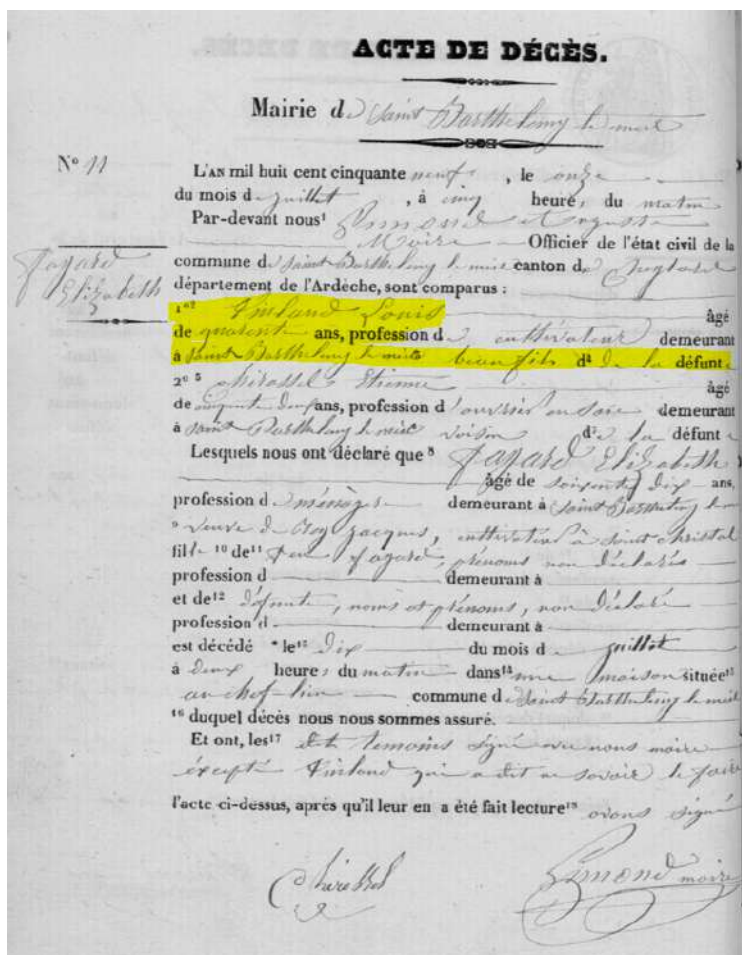 ACTE DE DÉCÈS.
Mairie de Saint Barthelemy le meil
N° 11
L'AN mil huit cent cinquante neuf, le onze
du mois de juillet, à cinq heure, du matin
Par-devant nous¹ Simond et Auguste
Maire Officier de l'état civil de la
commune de Saint Barthelemy le meil canton de
département de l'Ardèche, sont comparus :
Fayard
Elizabeth
1° ² Vinland Louis âgé
de quarante ans, profession de cultivateur demeurant
à Saint Barthelemy le meil beau fils d⁴ de la défunte
2° ⁵ Chirassel Etienne âgé
de ans, profession d'ouvrier en soie demeurant
à Saint Barthelemy le meil voisin d⁷e la défunte
Lesquels nous ont déclaré que ⁸ Fayard Elizabeth
âgé de soixante dix ans,
profession de ménagère demeurant à Saint Barthelemy le meil
⁹ veuve de Roy Jacques, cultivateur à Saint Christol
fille ¹⁰ de¹¹ feu Fayard, prénoms non déclarés
profession d demeurant à
et de¹² défunte, noms et prénoms, non déclaré
profession d demeurant à
est décédé le¹³ dix du mois de juillet
à deux heure, du matin dans¹⁴ une maison située¹⁵
au chef-lieu commune de Saint Barthelemy le meil
¹⁶ duquel décès nous nous sommes assuré.
Et ont, les¹⁷ dits temoins signé avec nous maire
excepté Vinland qui a dit ne savoir le faire
l'acte ci-dessus, après qu'il leur en a été fait lecture¹⁸ avons signé
Chirassel
Simond maire